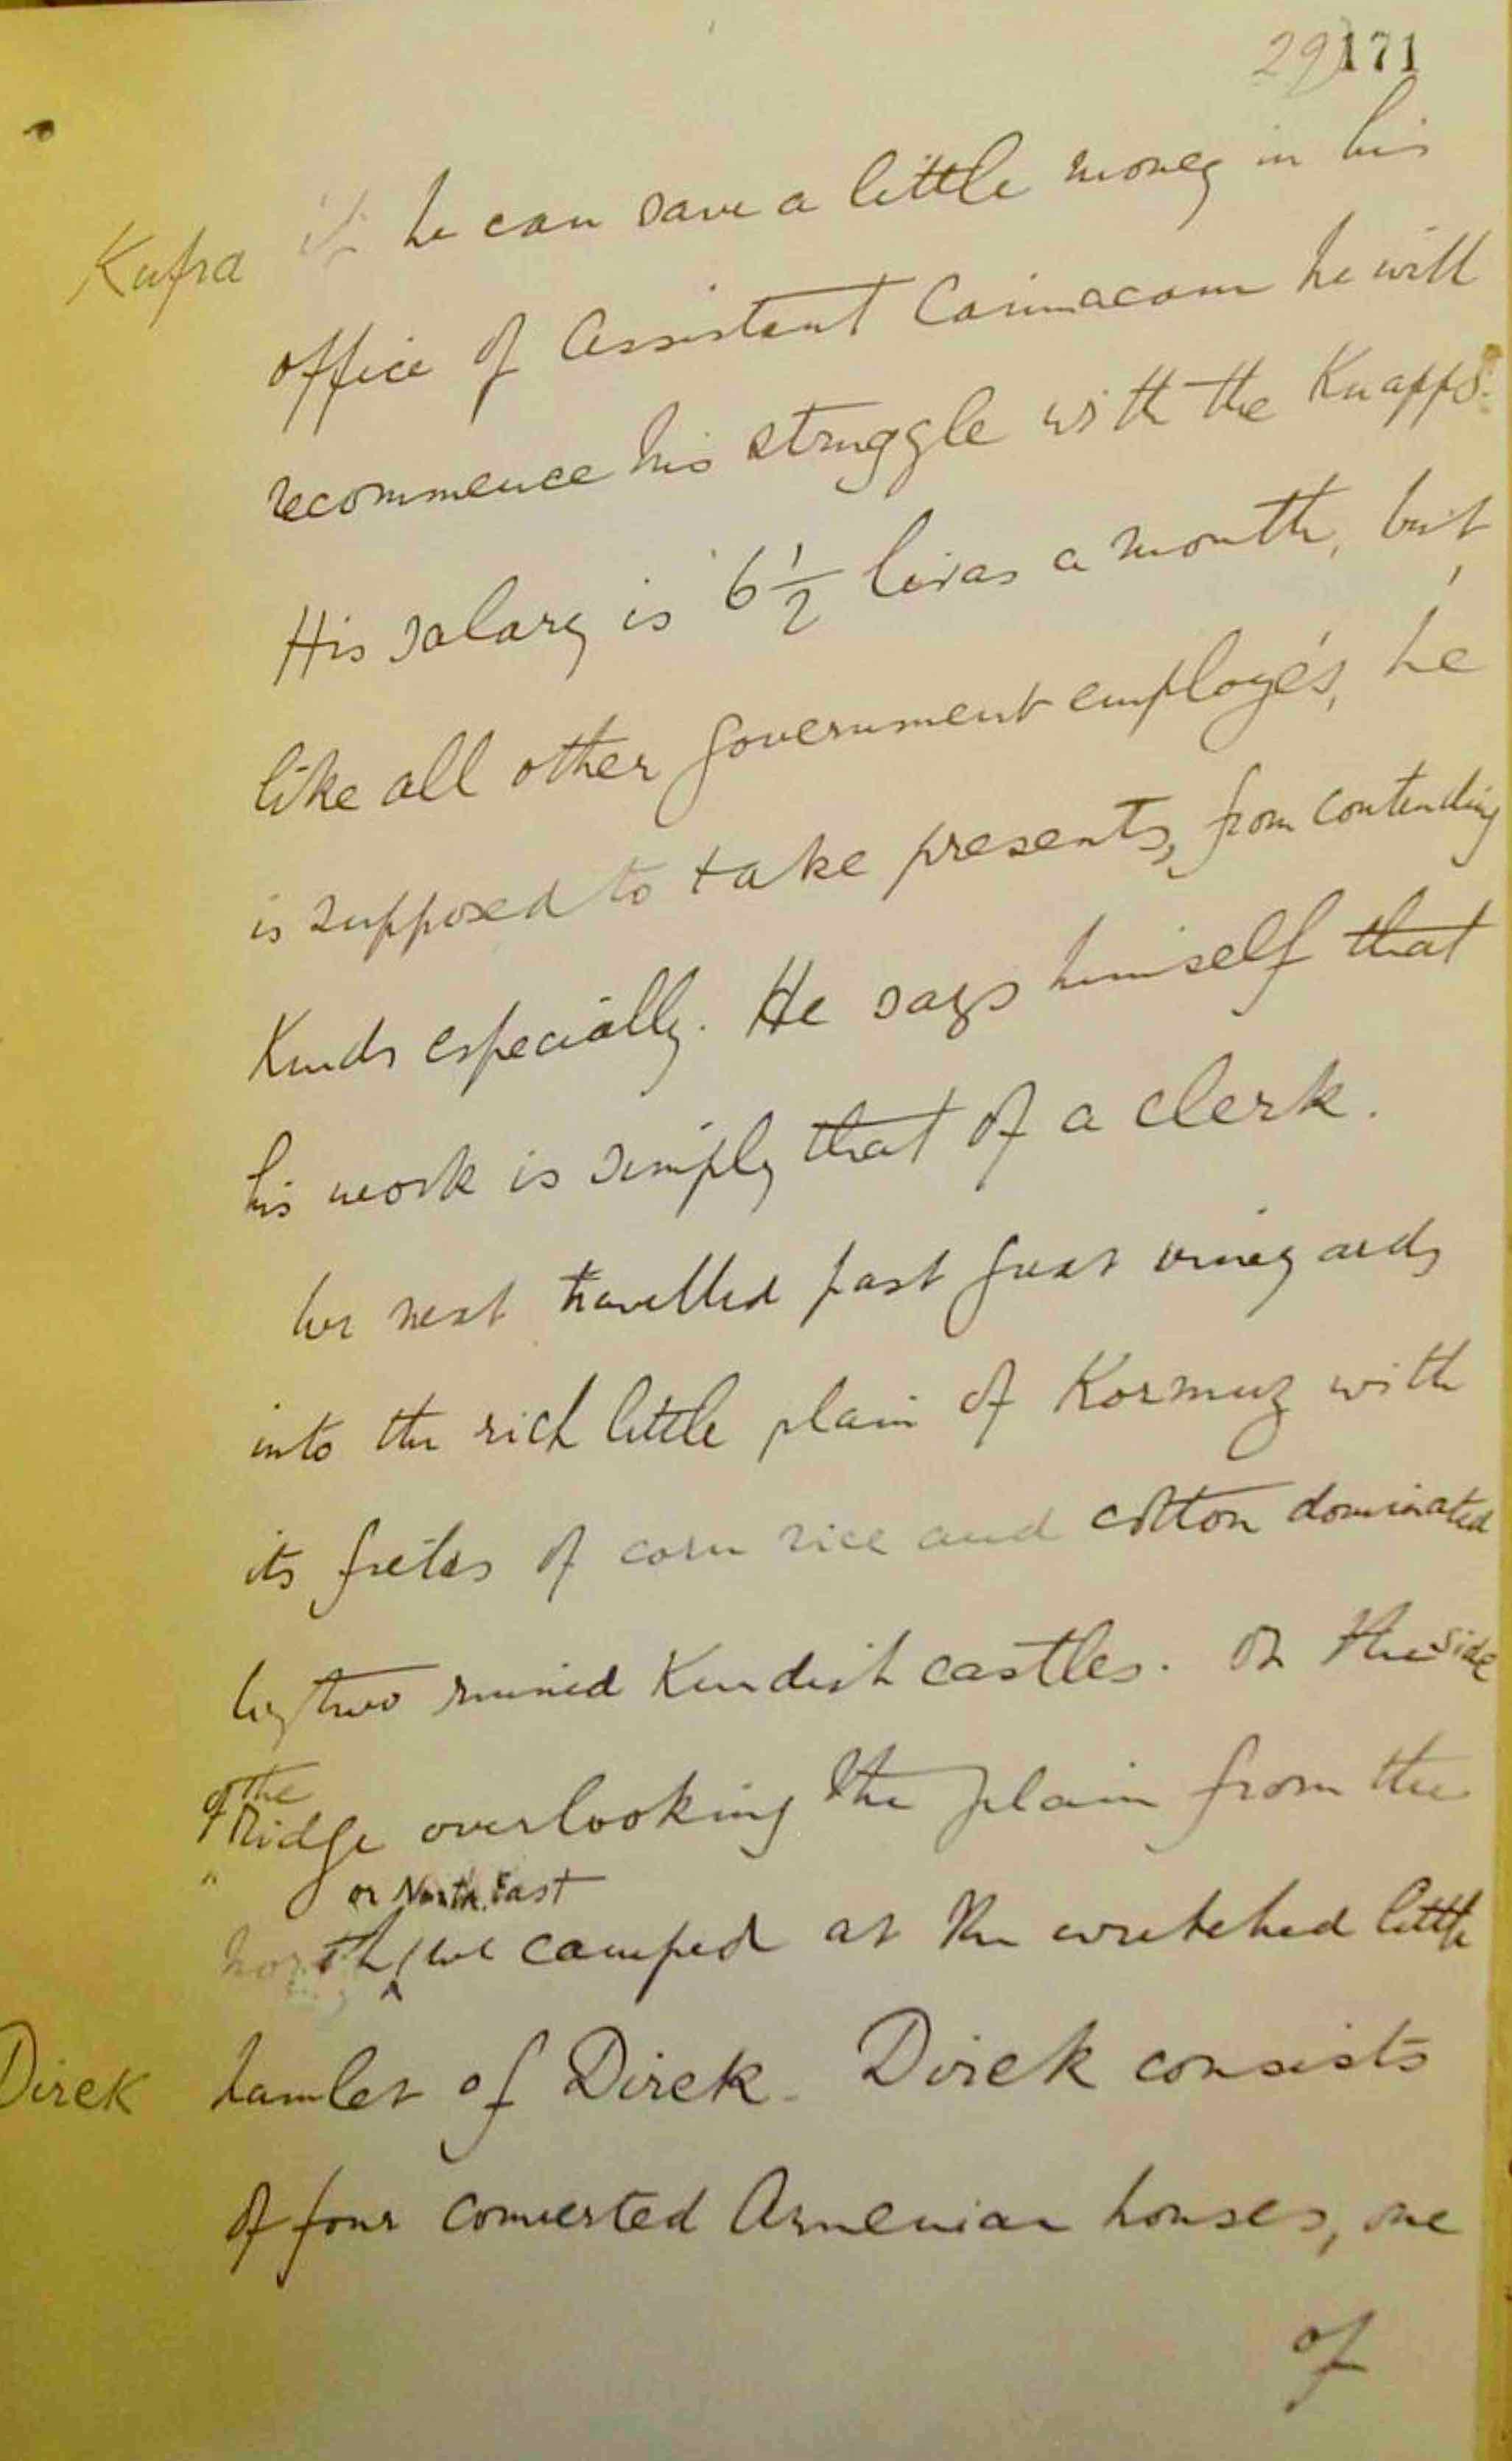 29 171
Kufra if he can save a little money in his
office of Assistant Caimacam he will
recommence his struggle with the Knapps.
His salary is 6½ liras a month, but,
like all other government employés, he
is supposed to take presents, from contending
Kurds especially. He says himself that
his work is simply that of a clerk.
We next travelled past great vineyards
into the rich little plain of Kormuz with
its fields of corn rice and cotton dominated
by two ruined Kurdish castles. On the side
of the
Ridge overlooking the plain from the
or North East
north, we camped at the wretched little
Direk hamlet of Direk. Direk consists
of four converted Armenian houses, one
of